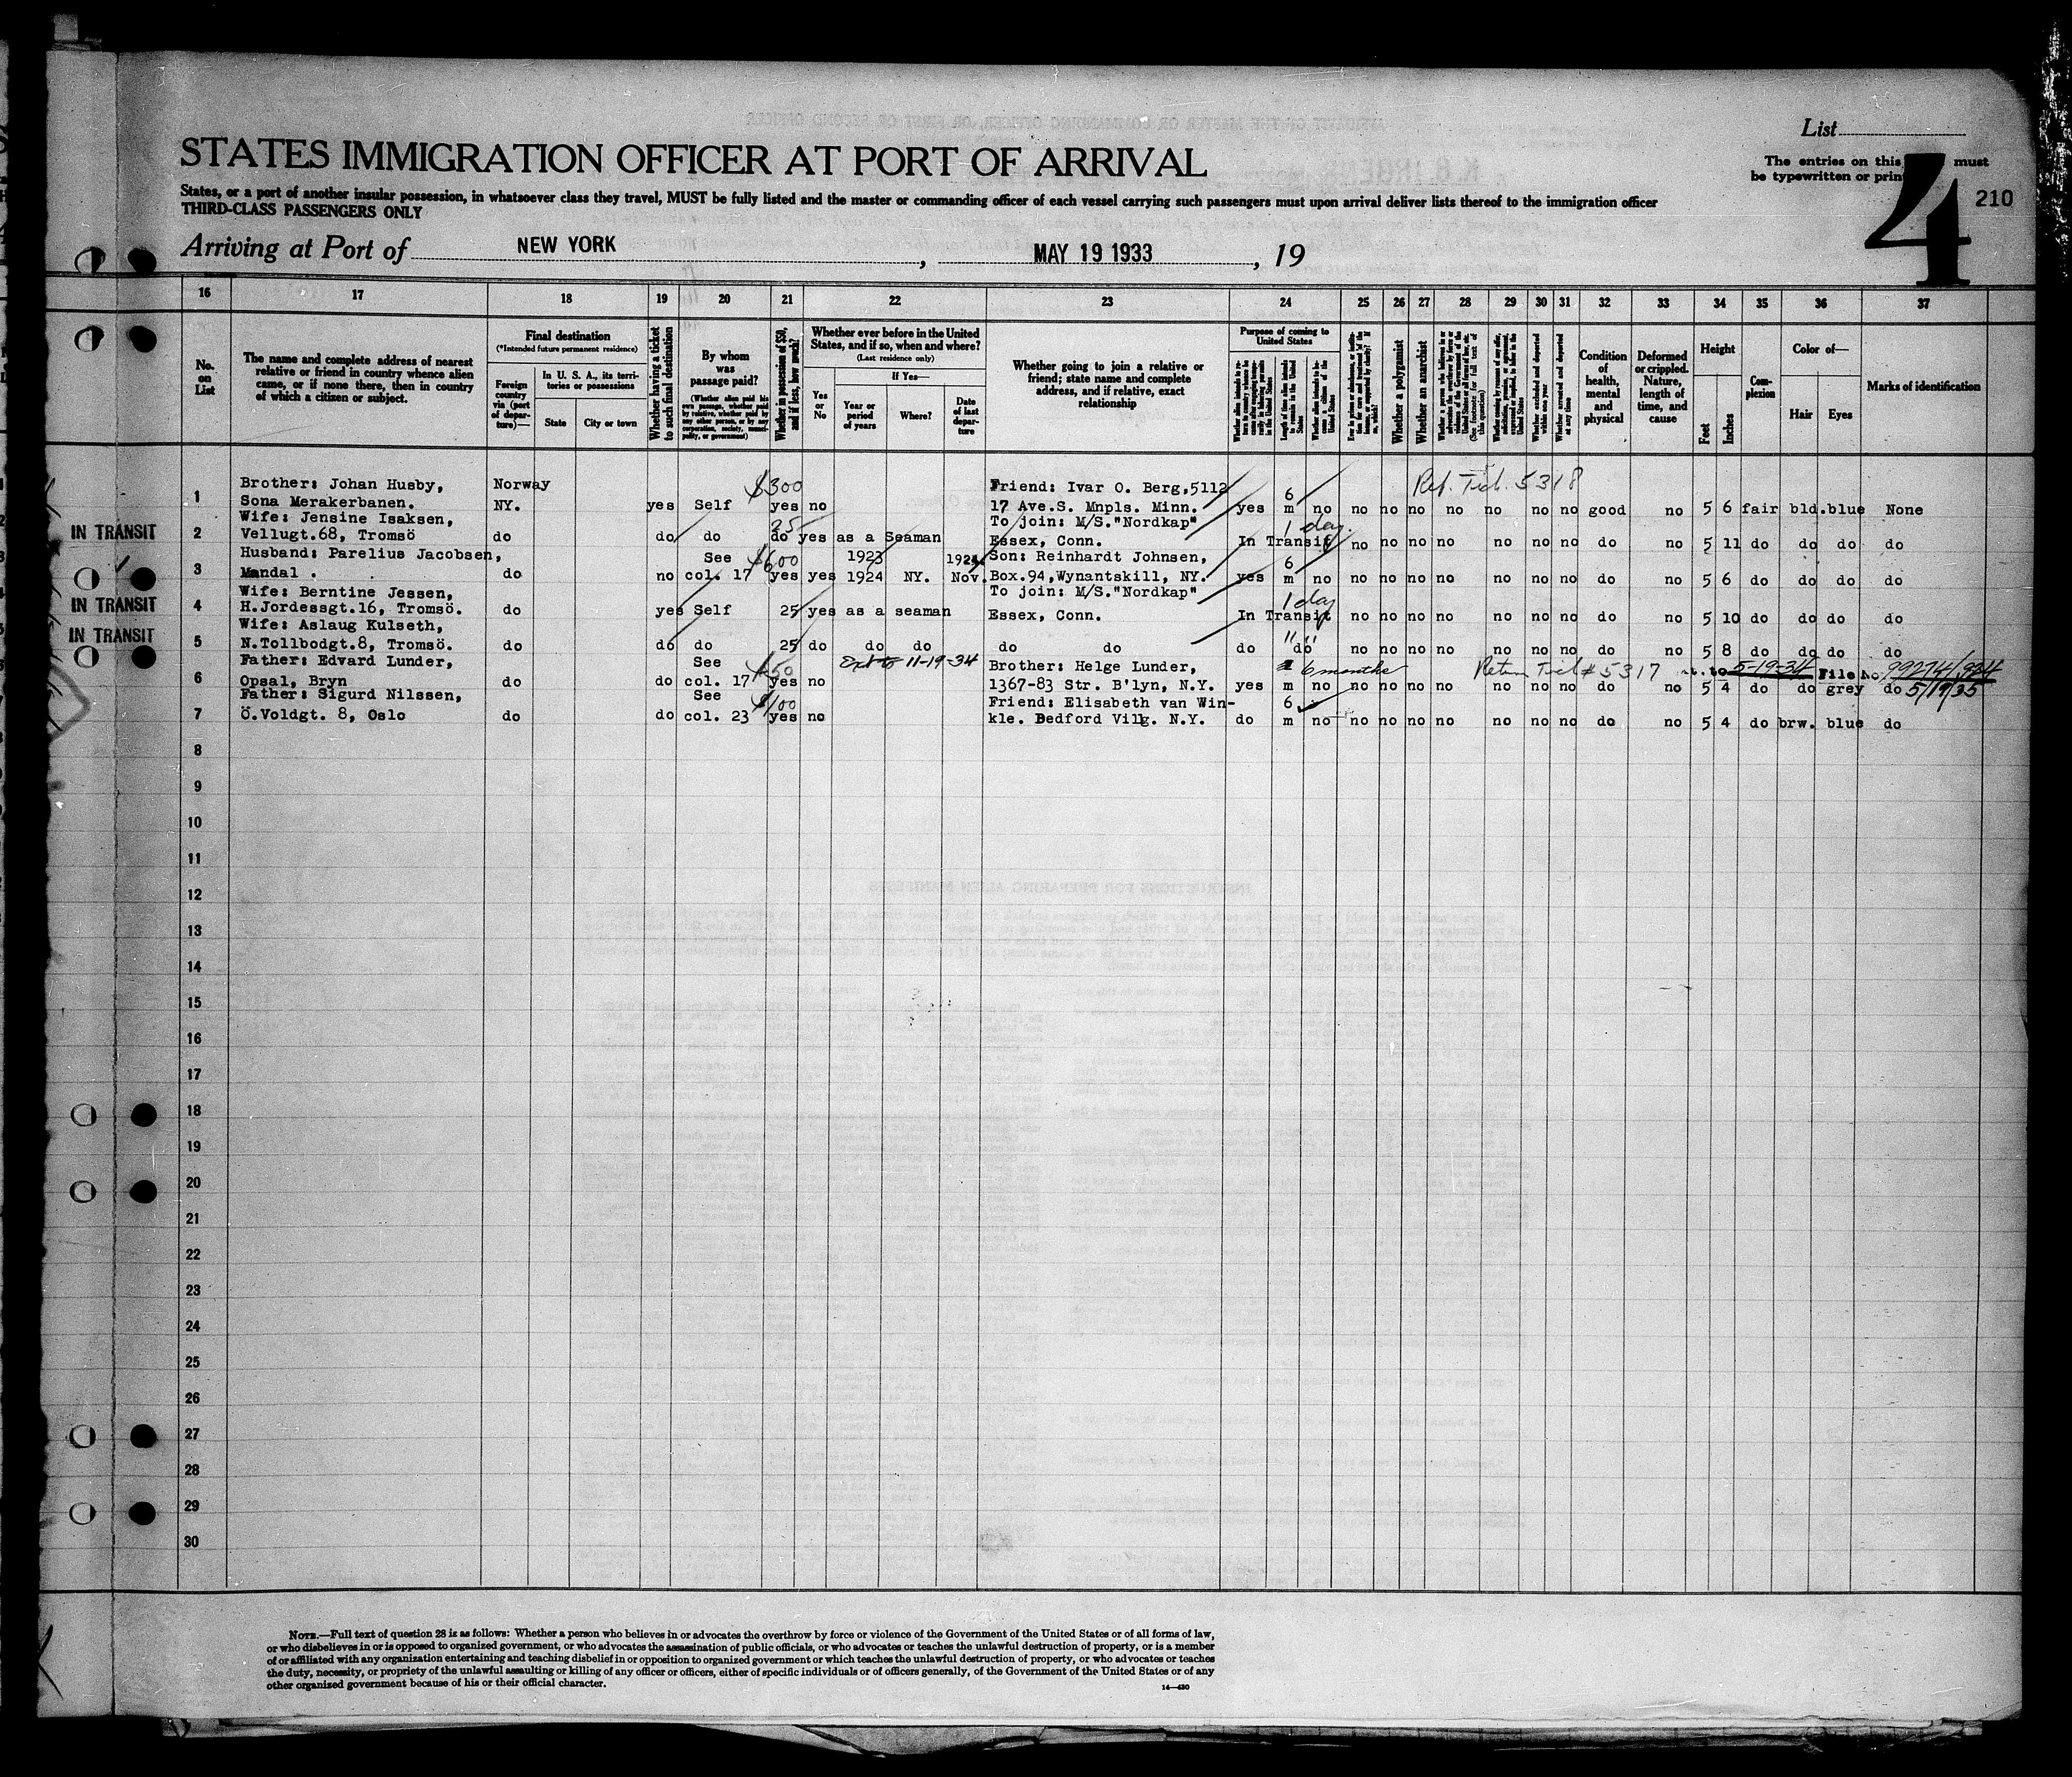 List
STATES IMMIGRATION OFFICER AT PORT OF ARRIVAL
The entries on this must
be typewritten or prin
4
210
States, or a port of another insular possession, in whatsoever class they travel, MUST be fully listed and the master or commanding officer of each vessel carrying such passengers must upon arrival deliver lists thereof to the immigration officer
THIRD-CLASS PASSENGERS ONLY
Arriving at Port of NEW YORK, MAY 19 1933, 19
16 17 18 19 20 21 22 23 24 25 26 27 28 29 30 31 32 33 34 35 36 37
No. on List
The name and complete address of nearest relative or friend in country whence alien came, or if none there, then in country of which a citizen or subject.
Final destination
(*Intended future permanent residence)
Foreign country via (port of departure)—
In U. S. A., its territories or possessions
State
City or town
Whether having a ticket to such final destination
By whom was passage paid?
(Whether alien paid his own passage, whether paid by relative, whether paid by any other person, or by any corporation, society, municipality, or government)
Whether in possession of $50, and if less, how much?
Whether ever before in the United States, and if so, when and where?
(Last residence only)
Yes or No
If Yes—
Year or period of years
Where?
Date of last departure
Whether going to join a relative or friend; state name and complete address, and if relative, exact relationship
Purpose of coming to United States
Whether a polygamist
Whether an anarchist
Condition of health, mental and physical
Deformed or crippled. Nature, length of time, and cause
Height
Feet
Inches
Complexion
Color of—
Hair
Eyes
Marks of identification
Brother: Johan Husby, Norway $300 Friend: Ivar O. Berg,5112 6 Ret. Tick. 5318
1 Sona Merakerbanen. NY. yes Self yes no 17 Ave.S. Mnpls. Minn. yes m no no no no no no no no good no 5 6 fair bld. blue None
Wife: Jensine Isaksen, 25 To join: M/S."Nordkap" 1 day
IN TRANSIT 2 Vellugt.68, Tromsö do do do do yes as a Seaman Essex, Conn. In Transit no no no no no no no do no 5 11 do do do do
Husband: Parelius Jacobsen, See $600 1923 1924 Son: Reinhardt Johnsen, 6
3 Mandal . do no col. 17 yes yes 1924 NY. Nov. Box.94,Wynantskill, NY. yes m no no no no no no no no do no 5 6 do do do do
Wife: Berntine Jessen, To join: M/S."Nordkap" 1 day
IN TRANSIT 4 H.Jordessgt.16, Tromsö. do yes Self 25 yes as a seaman Essex, Conn. In Transit no no no no no no no do no 5 10 do do do do
Wife: Aslaug Kulseth, " "
IN TRANSIT 5 N.Tollbodgt.8, Tromsö. do do do 25 do do do do do do do no no no no no no no do no 5 8 do do do do
Father: Edvard Lunder, See $50 Ext to 11-19-34 Brother: Helge Lunder, 6 months Return Tick # 5317 to 5-19-34 File No 99274/924
6 Opsal, Bryn do do col. 17 yes no 1367-83 Str. B'lyn, N.Y. yes m no no no no no no no no do no 5 4 do do grey do 5/19/35
Father: Sigurd Nilssen, See $100 Friend: Elisabeth van Win- 6
7 Ö.Voldgt. 8, Oslo do do col. 23 yes no kle. Bedford Vilg. N.Y. do m no no no no no no no no do no 5 4 do brw. blue do
8
9
10
11
12
13
14
15
16
17
18
19
20
21
22
23
24
25
26
27
28
29
30
NOTE.—Full text of question 28 is as follows: Whether a person who believes in or advocates the overthrow by force or violence of the Government of the United States or of all forms of law,
or who disbelieves in or is opposed to organized government, or who advocates the assassination of public officials, or who advocates or teaches the unlawful destruction of property, or is a member
of or affiliated with any organization entertaining and teaching disbelief in or opposition to organized government or which teaches the unlawful destruction of property, or who advocates or teaches
the duty, necessity, or propriety of the unlawful assaulting or killing of any officer or officers, either of specific individuals or of officers generally, of the Government of the United States or of any
other organized government because of his or their official character.
14—430